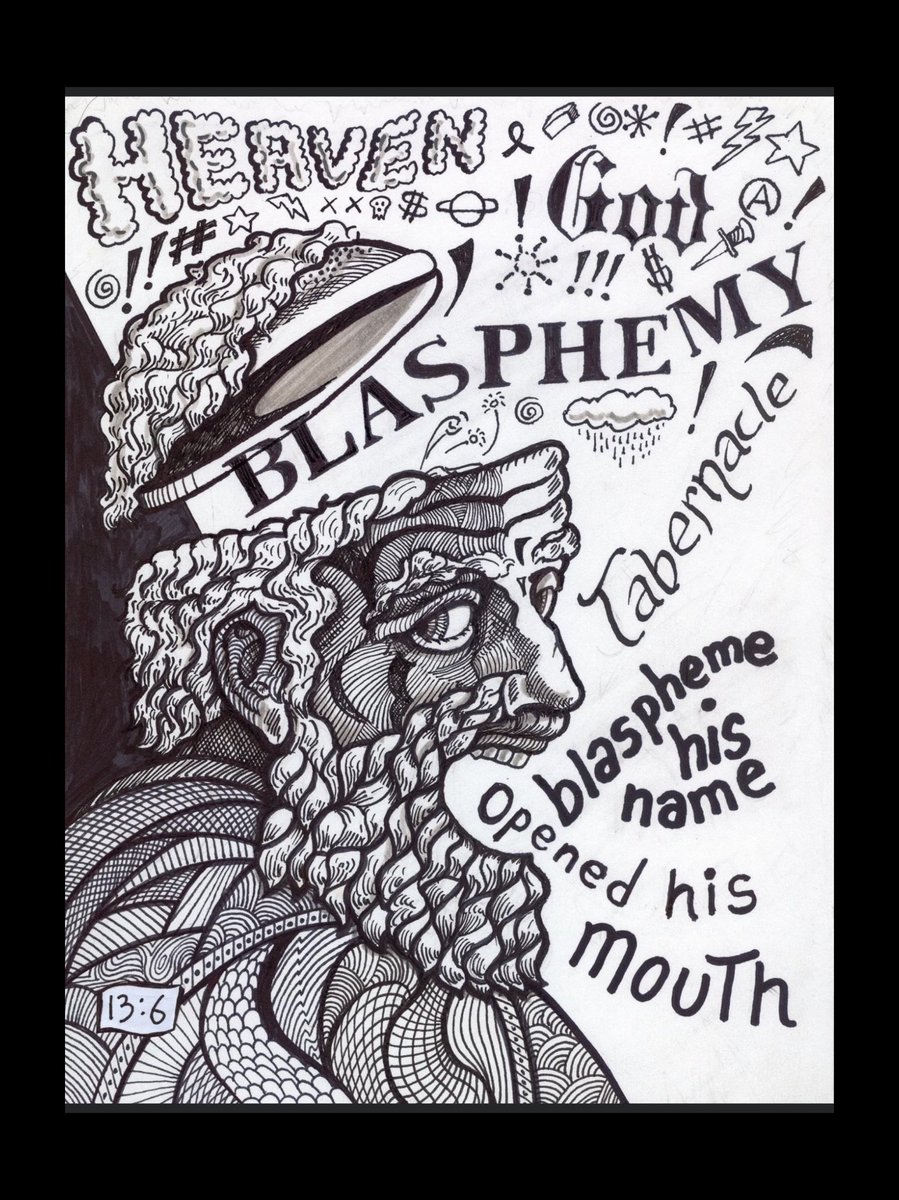 HEAVEN
God
BLASPHEMY
Tabernacle
blaspheme
his
name
Opened his
mouth
13:6